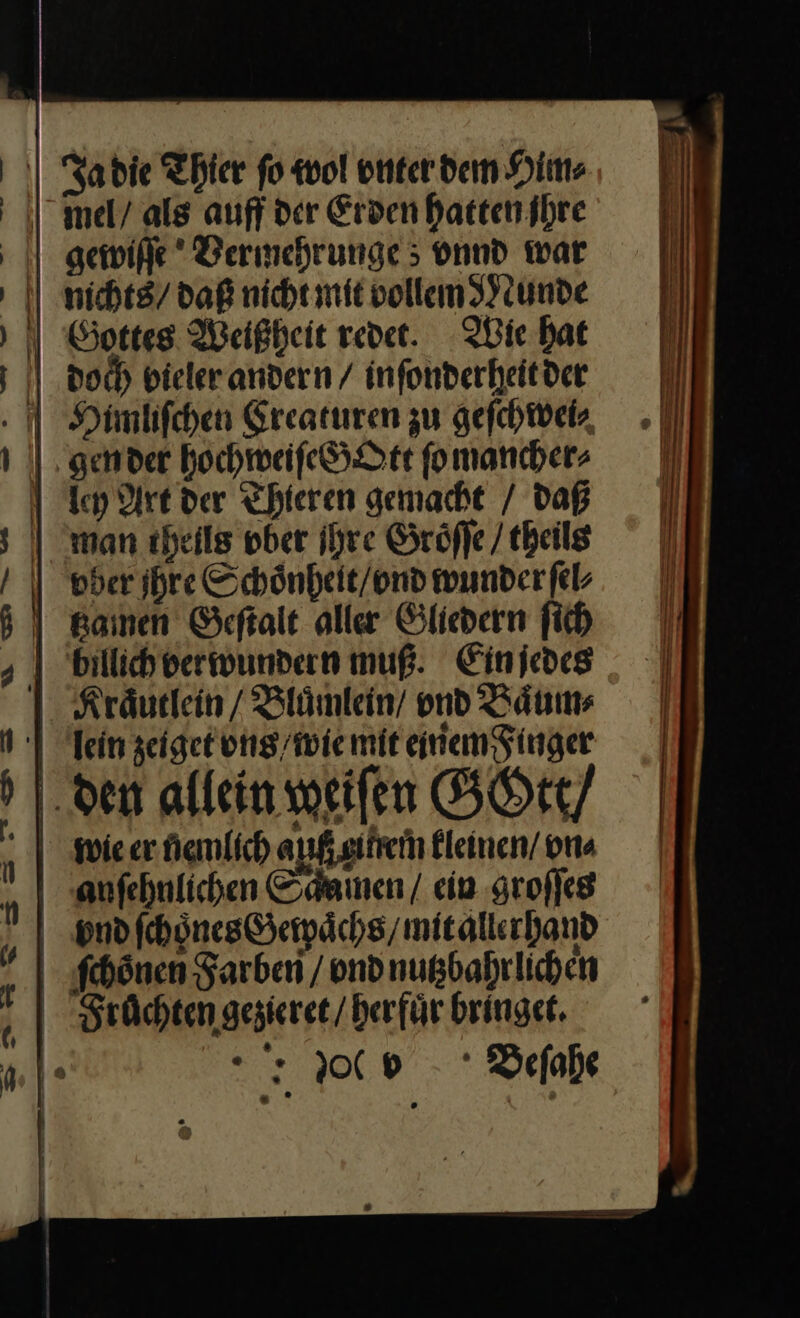 Ja die Thier ſo wol vnter dem Him⸗
mel/ als auff der Erden hatten jhre
gewiſſe Vermehrunge; vnnd war
nichts/ daß nicht mit vollem Munde
Gottes Weißheit redet. Wie hat
doch vieler andern / inſonderheit der
Himliſchen Creaturen zu geſchwei⸗
gen der hochweiſe GOtt ſo mancher⸗
ley Art der Thieren gemacht / daß
man theils vber jhre Groͤſſe / theils
vber jhre Schoͤnheit/ vnd wunder ſel⸗
tzamen Geſtalt aller Gliedern ſich
billich verwundern muß. Ein jedes
Kraͤutlein / Bluͤmlein/ vnd Baͤum⸗
lein zeiget vns/ wie mit einem Finger
den allein weiſen GOtt/
wie er nemlich auß einem kleinen/ vn⸗
anſehnlichen Saamen / ein groſſes
vnd ſchoͤnes Gewaͤchs/ mit allerhand
ſchoͤnen Farben / vnd nutzbahrlichen
Fruͤchten gezieret / herfuͤr bringet.
)o( v Beſahe